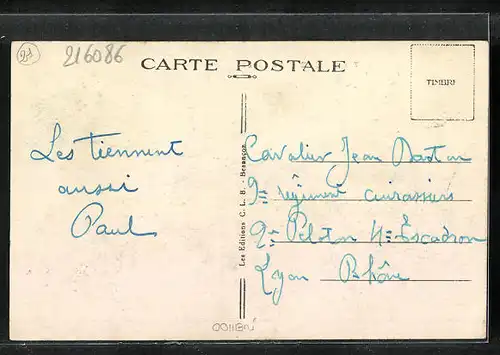 21
216086
CARTE POSTALE
TIMBRE
Les tiennent
aussi
Paul
Les Editions C. L. B. - Besançon
Cavalier Jean
9e régiment cuirassiers
2e Peloton 4e Escadron
Lyon Rhône